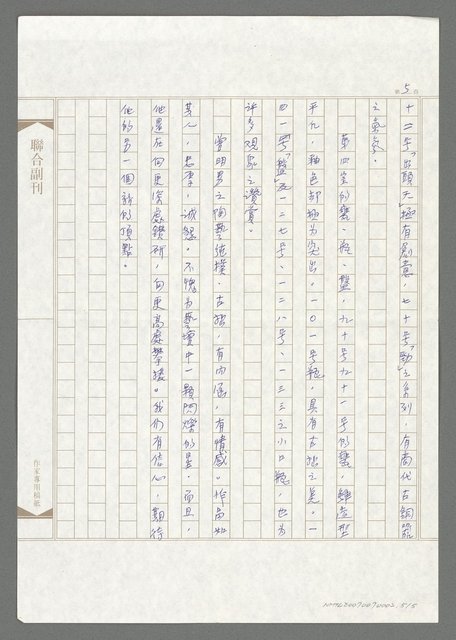 第5頁
十二号「出頭天」極有創意，七十号「勁」之系列，有商代古銅器
之氣氛。
第四室的甕、瓶、盤，九十号九十一号的甕，雖造型
平凡，釉色却極為突出，一〇一号瓶，具有古拙之美。一
四一号「盤」及一二七号、一二八号、一三三之小口瓶，也为
許多观象之讚賞。
曾明男之陶藝純樸、古拙，有內涵，有情感。作品如
其人，忠厚，誠懇。不愧为藝壇中一顆閃爍的星，而且，
他還在向更深處鑽研，向更高處攀援。我们有信心，期待
他的另一個新的頂點。
聯合副刊
作家專用稿紙
NMTL20070070002, 5/5